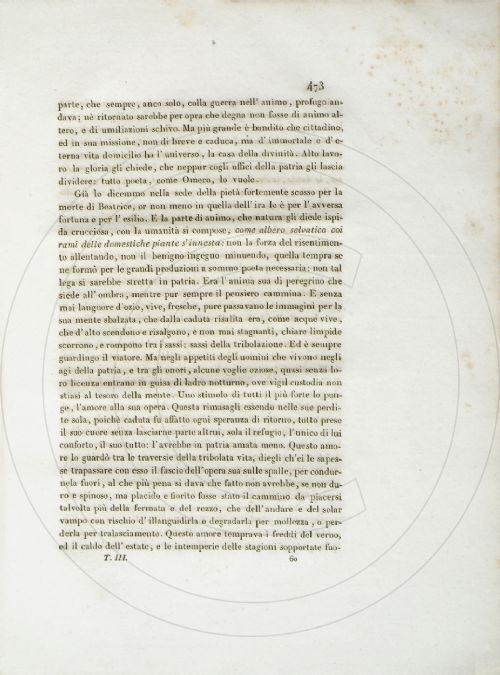 473
parte, che sempre, anco solo, colla guerra nell' animo, profugo an-
dava; nè ritornato sarebbe per opra che degna non fosse di animo al-
tero, e di umiliazioni schivo. Ma più grande è bandito che cittadino,
ed in sua missione, non di breve e caduca, ma d' immortale e d' e-
terna vita domicilio ha l' universo, la casa della divinità. Alto lavo-
ro la gloria gli chiede, che neppur cogli uffici della patria gli lascia
dividere: tutto poeta, come Omero, lo vuole.
Già lo dicemmo nella sede della pietà fortemente scosso per la
morte di Beatrice, or non meno in quella dell' ira lo è per l' avversa
fortuna e per l' esilio. E la parte di animo, che natura gli diede ispi-
da crucciosa, con la umanità si compose, come albero selvatico coi
rami delle domestiche piante s' innesta: non la forza del risentimen-
to allentando, non il benigno ingegno minuendo, quella tempra se
ne formò per le grandi produzioni a sommo poeta necessaria: non tal
lega si sarebbe stretta in patria. Era l' anima sua di peregrino che
siede all' ombra, mentre pur sempre il pensiero cammina. E senza
mai languore d'ozio, vive, fresche, pure passavano le immagini per la
sua mente sbalzata, che dalla caduta risalita era, come acque vive,
che d'alto scendono e risalgono, e non mai stagnanti, chiare limpide
scorrono, e rompono tra i sassi: sassi della tribolazione. Ed è sempre
guardingo il viatore. Ma negli appetiti degli uomini che vivono negli
agi della patria, e tra gli onori, alcune voglie oziose, quasi senza lo-
ro licenza entrano in guisa di ladro notturno, ove vigil custodia non
stiasi al tesoro della mente. Uno stimolo di tutti il più forte lo pun-
ge, l'amore alla sua opera. Questa rimasagli essendo nelle sue perdi-
te sola, poichè caduta fu affatto ogni speranza di ritorno, tutto prese
il suo cuore senza lasciarne parte altrui, sola il refugio, l'unico di lui
conforto, il suo tutto: l'avrebbe in patria amata meno. Questo amo-
re lo guardò tra le traversie della tribolata vita, diegli ch'ei le sapes-
se trapassare con esso il fascio dell'opera sua sulle spalle, per condur-
nela fuori, al che più pena si dava che fatto non avrebbe, se non du-
ro e spinoso, ma placido e fiorito fosse stato il cammino da piacersi
talvolta più della fermata e del rezzo, che dell'andare e del solar
vampo con rischio d' illanguidirla o degradarla per mollezza, o per-
derla per tralasciamento. Questo amore temprava i freddi del verno,
ed il caldo dell' estate, e le intemperie delle stagioni sopportate fuo-
T. III. 60